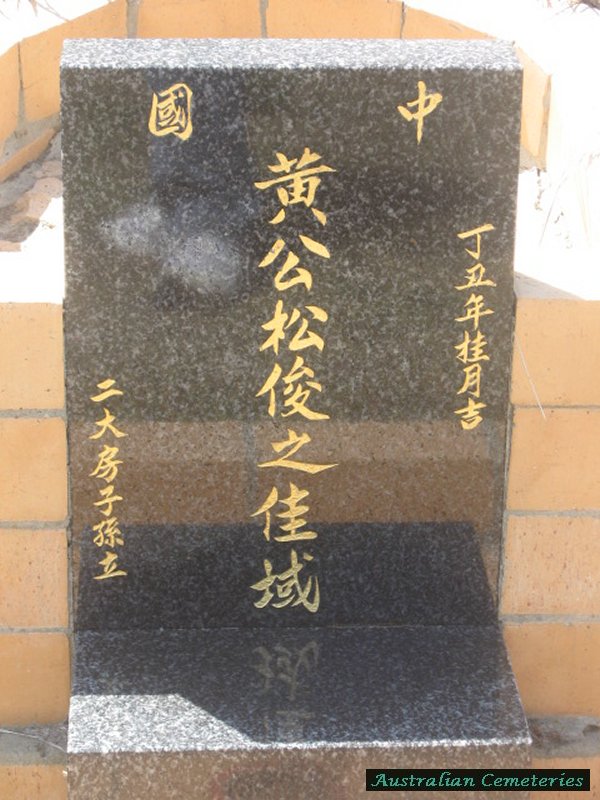 中國
丁丑年桂月吉
黄公松俊之佳域
二大房子孫立
Australian Cemeteries